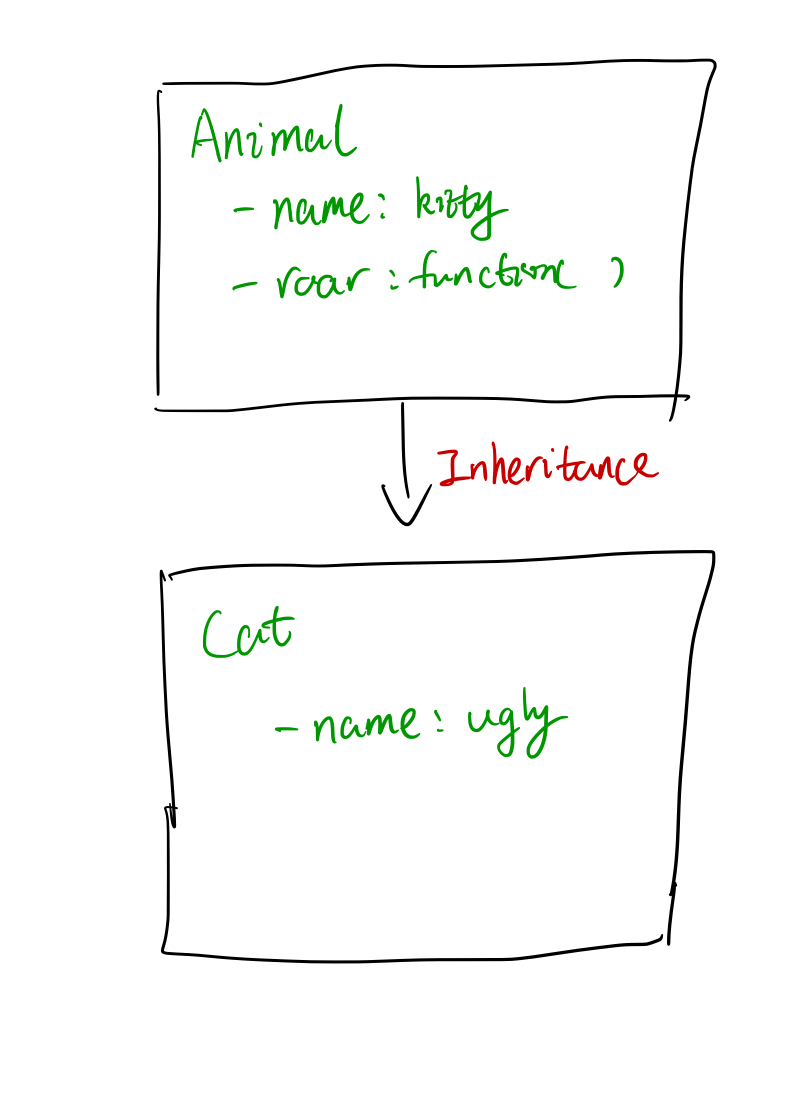 Animal
- name: kitty
- roar: function( )
Inheritance
Cat
- name: ugly